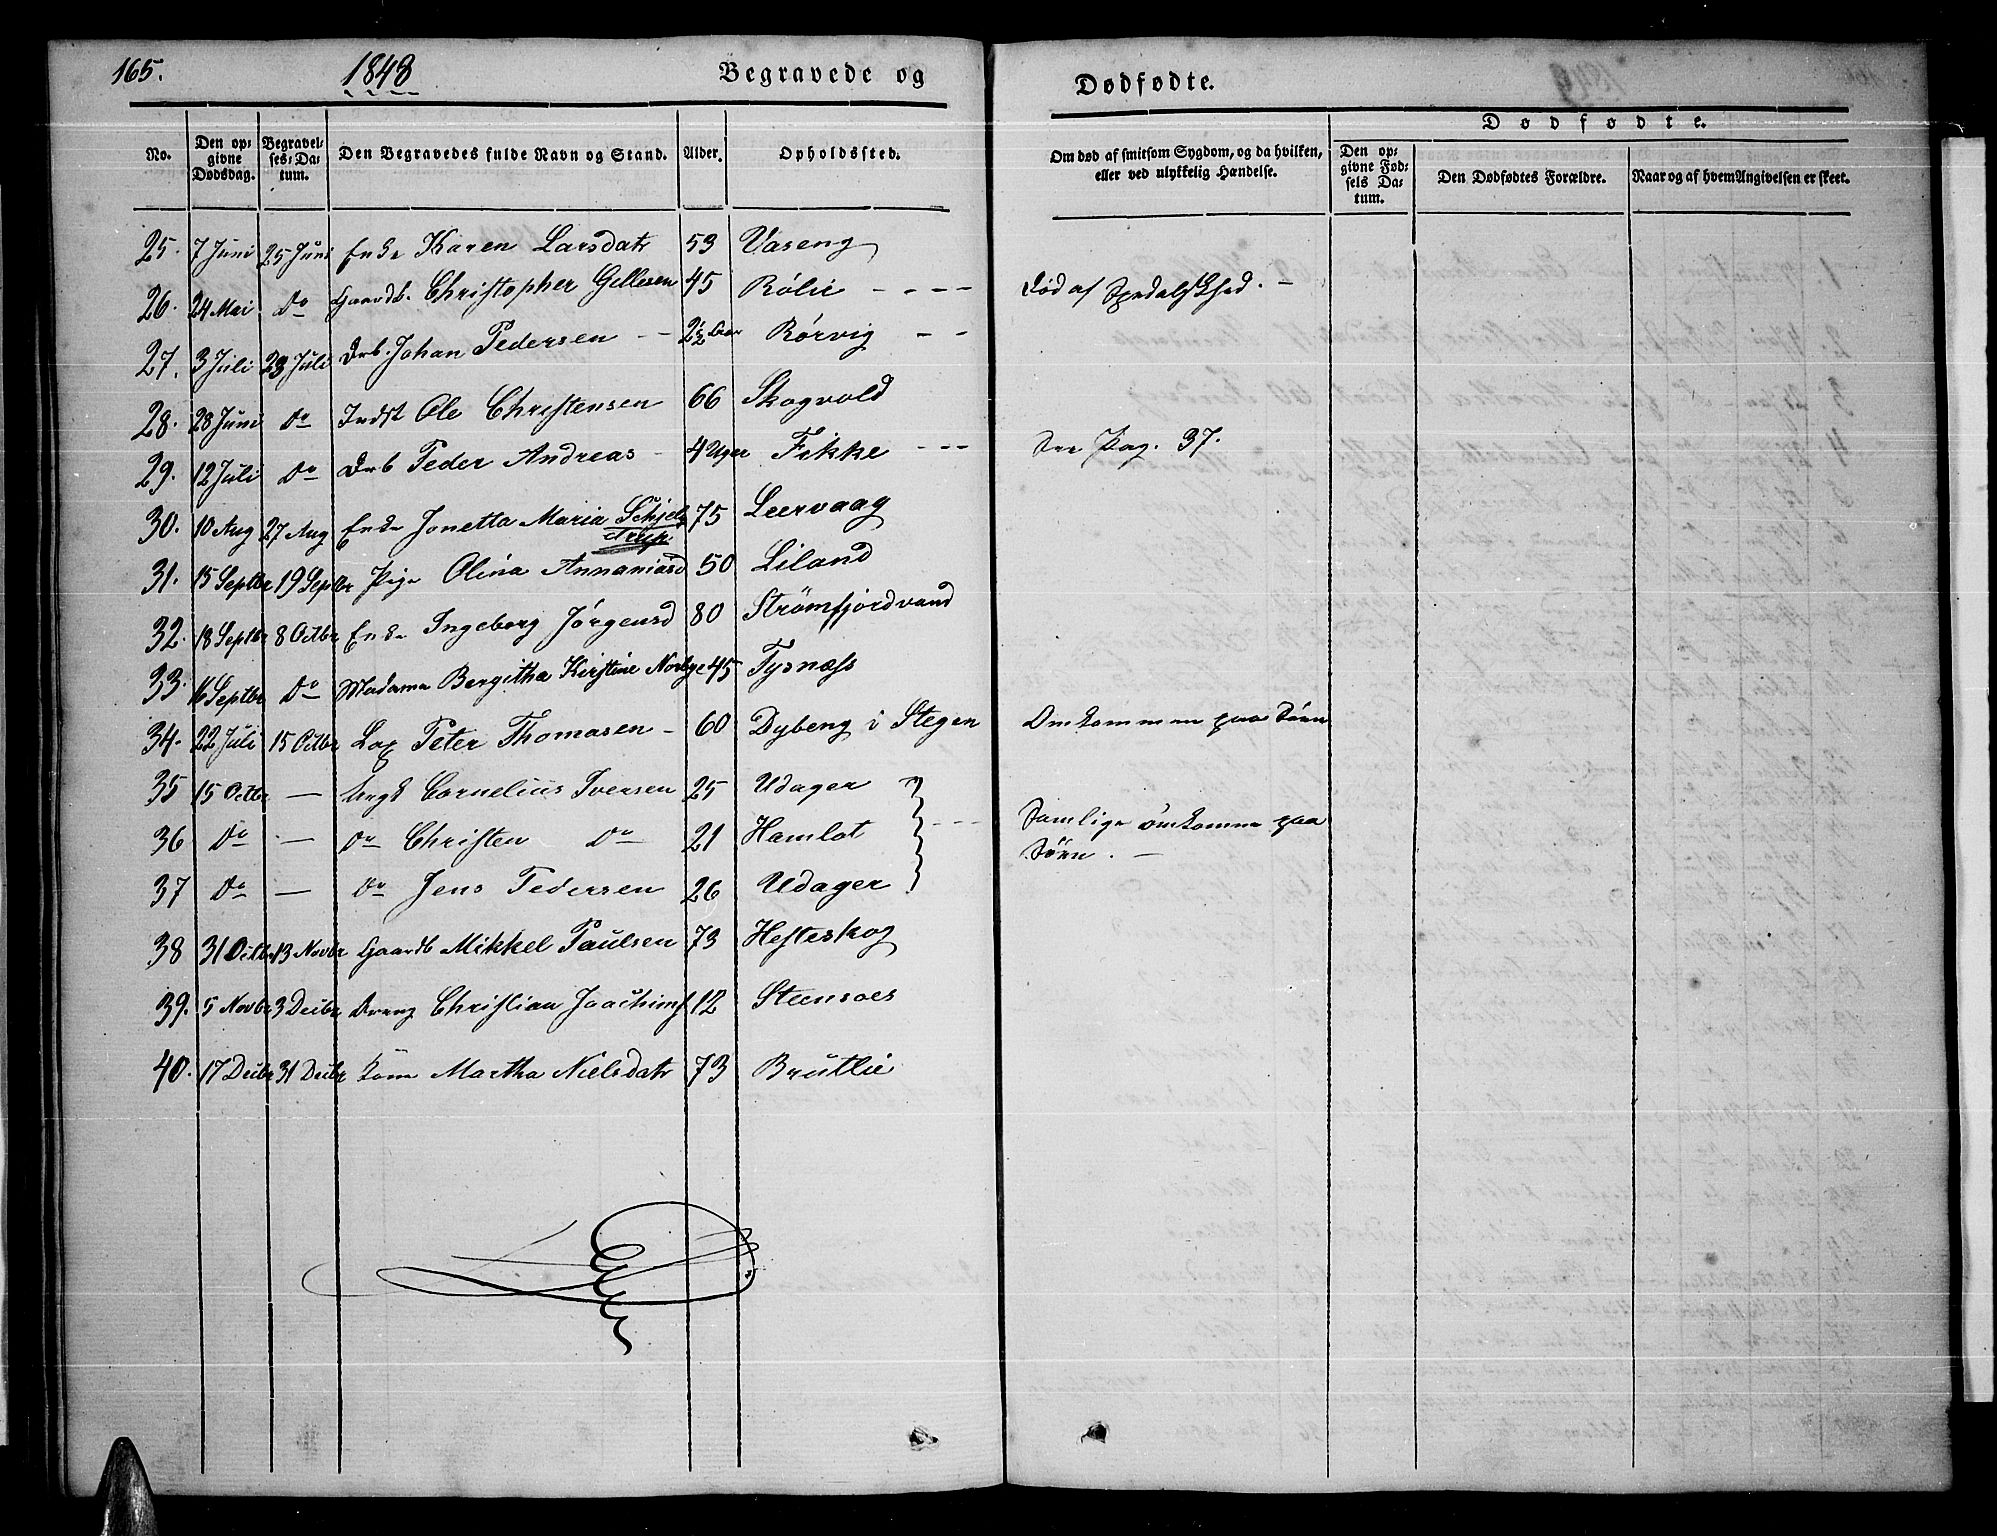 165. 1848 Begravede og Dødfødte.
No. Den opgivne Dødsdag. Begravelses-Datum. Den Begravedes fulde Navn og Stand. Alder. Opholdssted. Om død af smitsom Sygdom, og da hvilken, eller ved ulykkelig Hændelse. Dødfødte. Den opgivne Fødsels Datum. Den Dødfødtes Forældre. Naar og af hvem Angivelsen er skeet.
25. 7 Juni 25 Juni Enke Karen Larsdatr 53 Vaseng
26. 24 Mai Do Gaardb. Christopher Gellesen 45 Rølie - - - - Død af Spedalskhed. -
27. 3 Juli 23 Juli Drb. Johan Pedersen - 2½ Aar Rørvig - -
28. 28 Juni Do Indst Ole Christensen 66 Skogvold
29. 12 Juli Do Drb Peder Andreas - 4 Uger Fikke - - - See Pag. 37.
30. 10 Aug 27 Aug Enke Jonetta Maria Schjel- 75 Leervaag
drup
31. 15 Septbr 19 Septbr Pige Olina Annaniasd 50 Liland
32. 18 Septbr 8 Octbr Enke Ingeborg Jørgensd 80 Strømfjordvand
33. 16 Septbr Do Madame Bergitha Kirstine Norbye 45 Tysnæss
34. 22 Juli 15 Octbr Peter Thomasen - 60 Dybeng i Stegen Omkommen paa Søen
35 15 Octbr — Ungk Cornelius Iversen 25 Udager
36 Do — Do Christen Do 21 Hamlot - - - Samlige omkomne paa
Søen. -
37 Do — Do Jens Pedersen 26 Udager
38 31 Octbr 13 Novbr Gaardb Mikkel Paulsen 73 Hesteskog
39. 5 Novbr 3 Decbr Dreng Christian Joachims 12 Steensoes
40. 17 Decbr 31 Decbr Kone Martha Nielsdatr 73 Brutlie